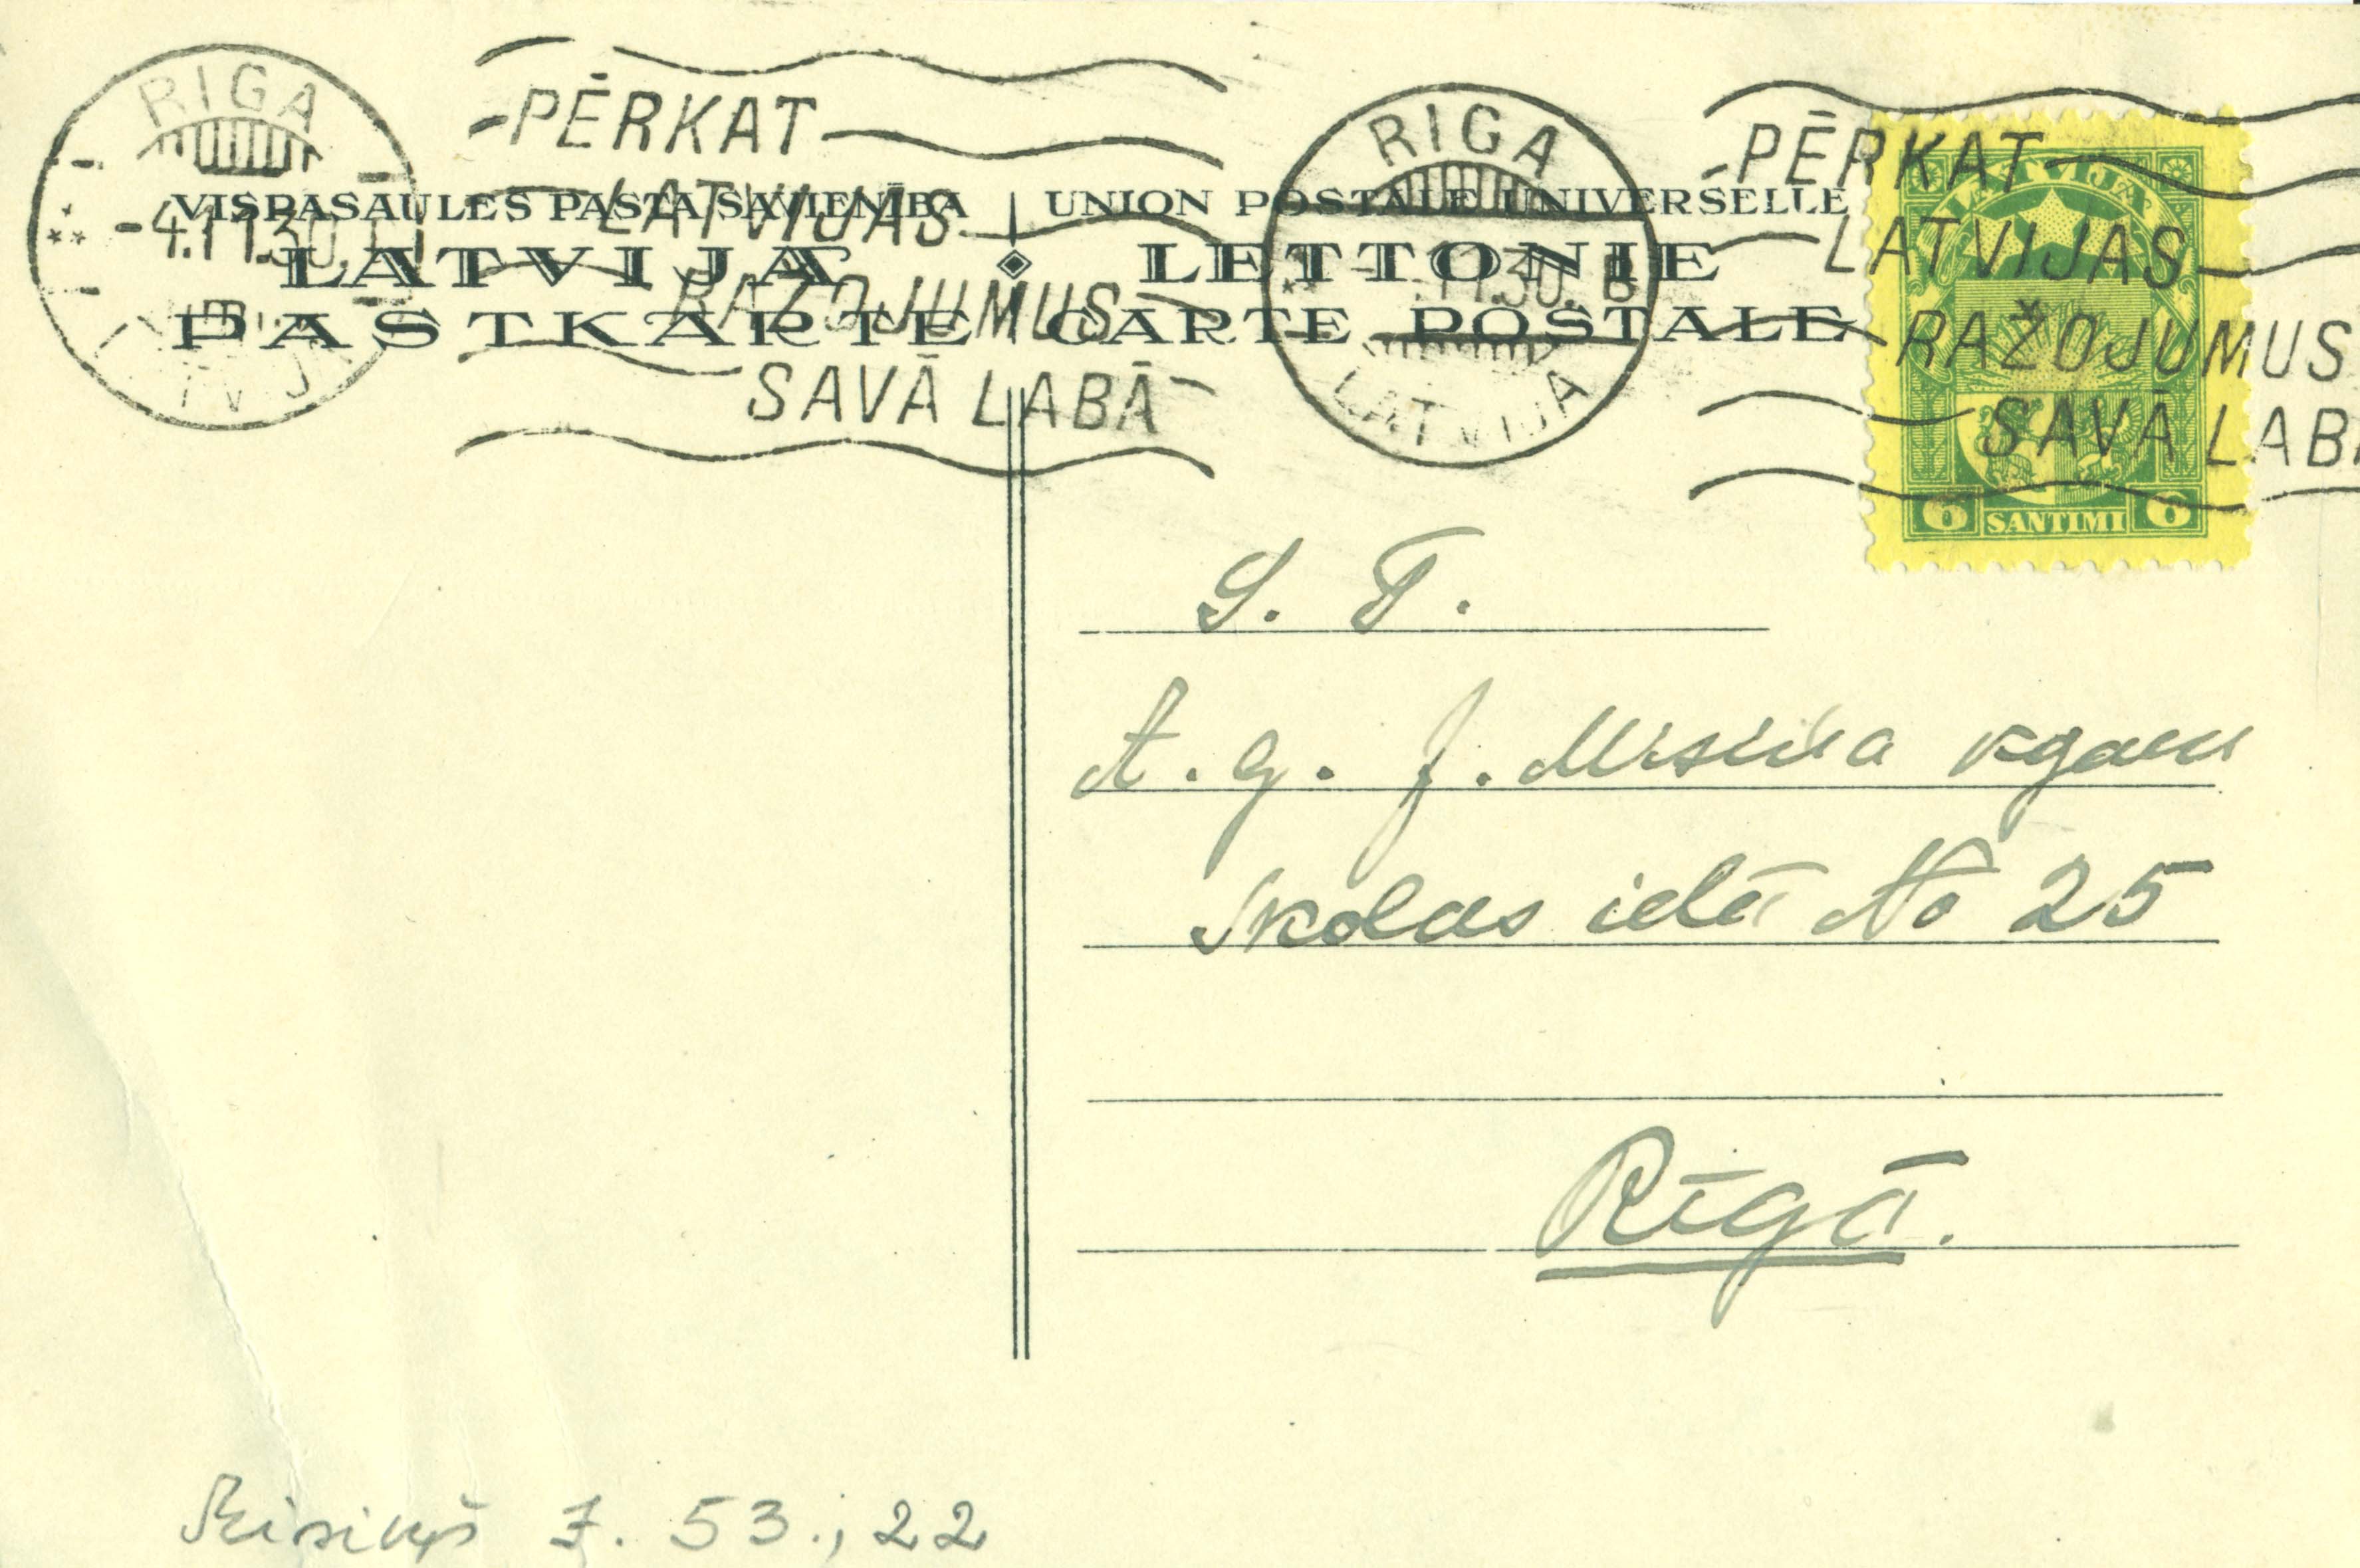 RIGA
-4.11.30.
LATVIJA
PĒRKAT
LATVIJAS
RAŽOJUMUS
SAVĀ LABĀ
RIGA
11.30.
LATVIJA
PĒRKAT
LATVIJAS
RAŽOJUMUS
SAVĀ LAB
VISPASAULES PASTA SAVIENĪBA
LATVIJA
PASTKARTE
UNION POSTALE UNIVERSELLE
LETTONIE
CARTE POSTALE
LATVIJA
6 SANTIMI 6
S. T.
A. g. J. Misiņa kgam
Skolas ielā No 25
Rīgā.
Misiņš J. 53.; 22